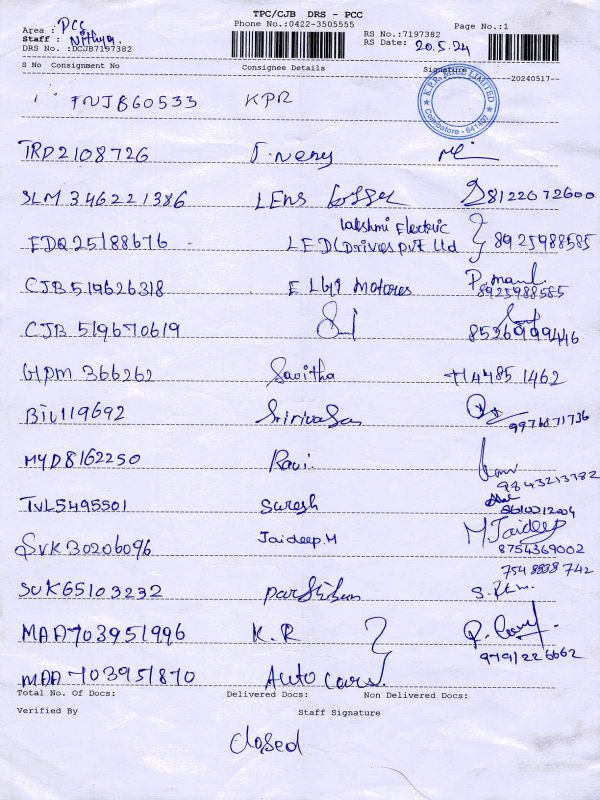 TPC/CJB DRS - PCC
Area : PCS
Phone No.:0422-3505555
Page No.:1
Staff : Nithya
RS No.:7197382
DRS No. :DCJB7197382
RS Date: 20.5.24
S No Consignment No Consignee Details Signature
--20240517--
K.P.R. LIMITED
Coimbatore - 641407
1 TNJB60533 KPR
TRP2108726
SLM 346221386 LENS 8122072600
Lakshmi Electric
EDQ25188676 LED Drives pvt ltd 8925988585
CJB519626318 E Motores
8925988585
CJB 519670619 8526999446
HPM 366262 Savitha 944851462
BIL119692 Srinivasan
9976871736
MYD8162250 Ravi
9843213782
TVL5495501 Suresh 8610012004
SVK30206096 Jaideep.M M Jaideep
8754369002
754 8838 742
SUK65103232
MAA703951996 K.R
9791226662
MAA703951870 Auto cars
Total No. Of Docs: Delivered Docs: Non Delivered Docs:
Verified By Staff Signature
closed